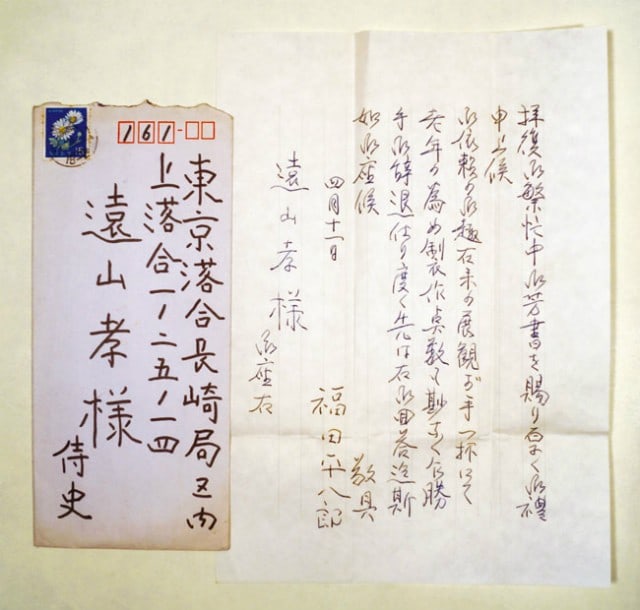 161
東京落合長崎局区内
上落合一ノ二五ノ一四
遠山孝様
侍史
拝復御繁忙中御芳書を賜り厚く御禮
申上候
御依頼の御趣在来の展観が手一杯にて
老年の為め製作数も尠なく乍勝
手御辞退仕り度く先は右御回答迄斯
如御座候 敬具
四月十一日
福田平八郎
遠山孝様
御座右